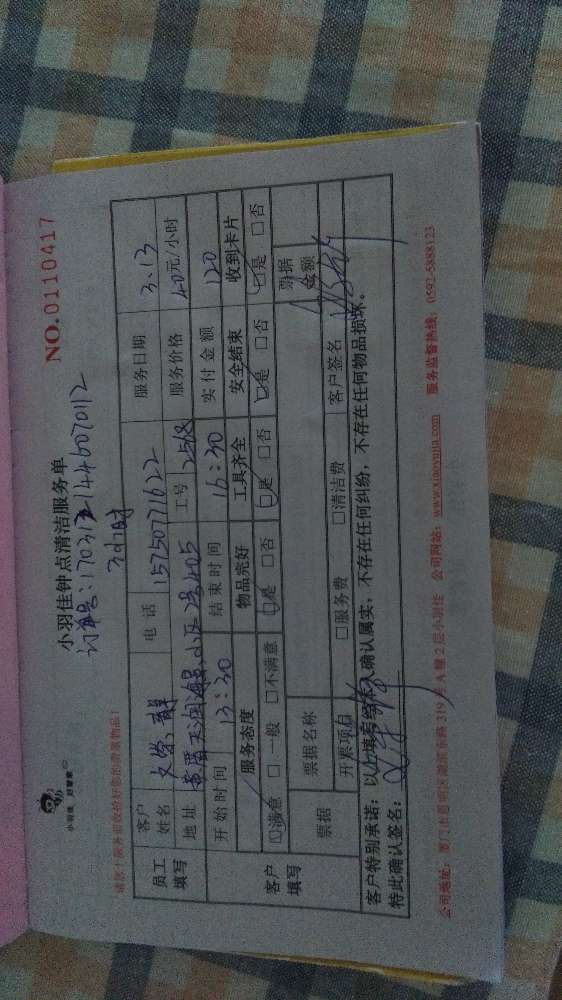 小羽佳 好管家
小羽佳钟点清洁服务单
NO.0110417
3小时
员工填写
客户姓名
电话 15750771622
服务日期 3.13
地址
工号 2568
服务价格 40元/小时
开始时间 13:30
结束时间 16:30
实付金额 120
客户填写
服务态度 物品完好 工具齐全 安全结束 收到卡片
☑满意 □一般 □不满意 ☑是 □否 ☑是 □否 ☑是 □否 ☑是 □否
票据 票据名称 票据金额
开票项目 □服务费 □清洁费 客户签名
客户特别承诺:以上填写经本人确认属实,不存在任何纠纷,不存在任何物品损坏。
特此确认签名:
公司地址: 319号A幢2层小羽佳 公司网站:www.xiaoyujia.com 服务监督热线:0592-5888123